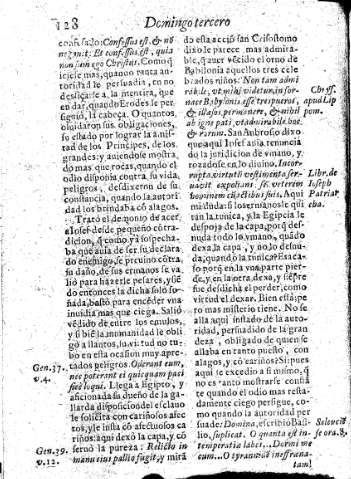 128
Domingo tercero
confesado: Confessus est, & nō
negauit: Et confessus est, quia
non sum ego Christus. Como q̃
hiziese mas, quando tanta au-
toridad le persuadia, en no
deslizarse a la mentira, que
en dar, quando Erodes se per-
signiò, la cabeça. O quantos,
oluidaron sus obligaciones,
su estado por lograr la amis-
tad de los Principes, de los
grandes: y auiendose mostra-
do mas que rocas, quando el
odio disponia contra su vida,
peligros, desdixeron de su
constancia, quando la autori-
dad los brindaua cō alagos.
Tratò el demonio de acer
a Iosef desde pequeño cōtra-
dicion, q̃ como yà sospecha-
ba que auia de ser su declara
do enemigo, se preuino cōtra
su daño, de sus ermanos se va
liò para hazerle pesares, siē-
do entonces la dicha solo so-
ñada, bastò para encēder vna
inuidia mas que ciega. Saliò
vēdido de entre los emulos,
y si biē la umanidad le obli-
gò a llantos, su virtud no tu-
bo en esta ocasion muy apre-
tados peligros Oderant eum,
nec poterant ei quicquam paci
ficè loqui. Llega a Egipto, y
aficionada su dueño de la ga-
llarda disposicion del esclauo
le solicita con cariñosos afec
tos, y le insta cō afectuosos ca
riños: aqui dexò la capa, y cō
seruò la pureza: Relicto in
manu eius pallio fugit, y mirā
Gen. 37.
v. 4.
Gen. 39.
v. 12.
do esta acciō san Crisostomo
dixo le parece mas admira-
ble, q̃ auer vēcido el orno de
Babilonia aquellos tres cele
brados niños: Non tam admi
rabile, vt mihi videtur, in for-
nace Babylonis esse tres pueros,
& illæsos permanere, & nihil
ab igni pati, vt admirabile hoc
& rarum. San Ambrosio dixo
que aqui Iosef auia renuncia
do la jurisdicion de umano, y
rozadose en lo diuino. Incor-
rupta virtuti vestimenta ser-
uauit expolians se veterem
hominem cū actibus suis. Aqui
mi duda: si los ermanos le qui
tan la tunica, y la Egipcia le
despoja de la capa, porq̃ des-
nuda todo lo umano, quādo
dexa la capa, y no lo desnu-
da, quando la tunica? Esa ca-
so porq̃ en la vna parte pier-
de, y en la otra, dexa, y si fue-
ra desdicha el perder, como
virtud el dexar. Bien està; pe
ro mas misterio tiene. No se
alla aqui instado de la auto-
ridad, persuadido de la gran
deza, obligado de quien se
allaba en tanto puesto, con
alagos, y cō cariños? Si: pues
aqui se excedio a si mismo, q̃
no es tanto mostrarse confiā
te quando el odio mas resta-
damente ciego persigue, co-
mo quando la autoridad per
suade: Domina, escribio Basi-
lio, suplicat. O quanta est in-
temperatia labes... Dormi me
cum... O tyrannicā ineffrena-
tam!
Chrys.
apud Lip
pom.
Libr. de
Ioseph
Patriar
cha.
Seleucia
se ora. 8.